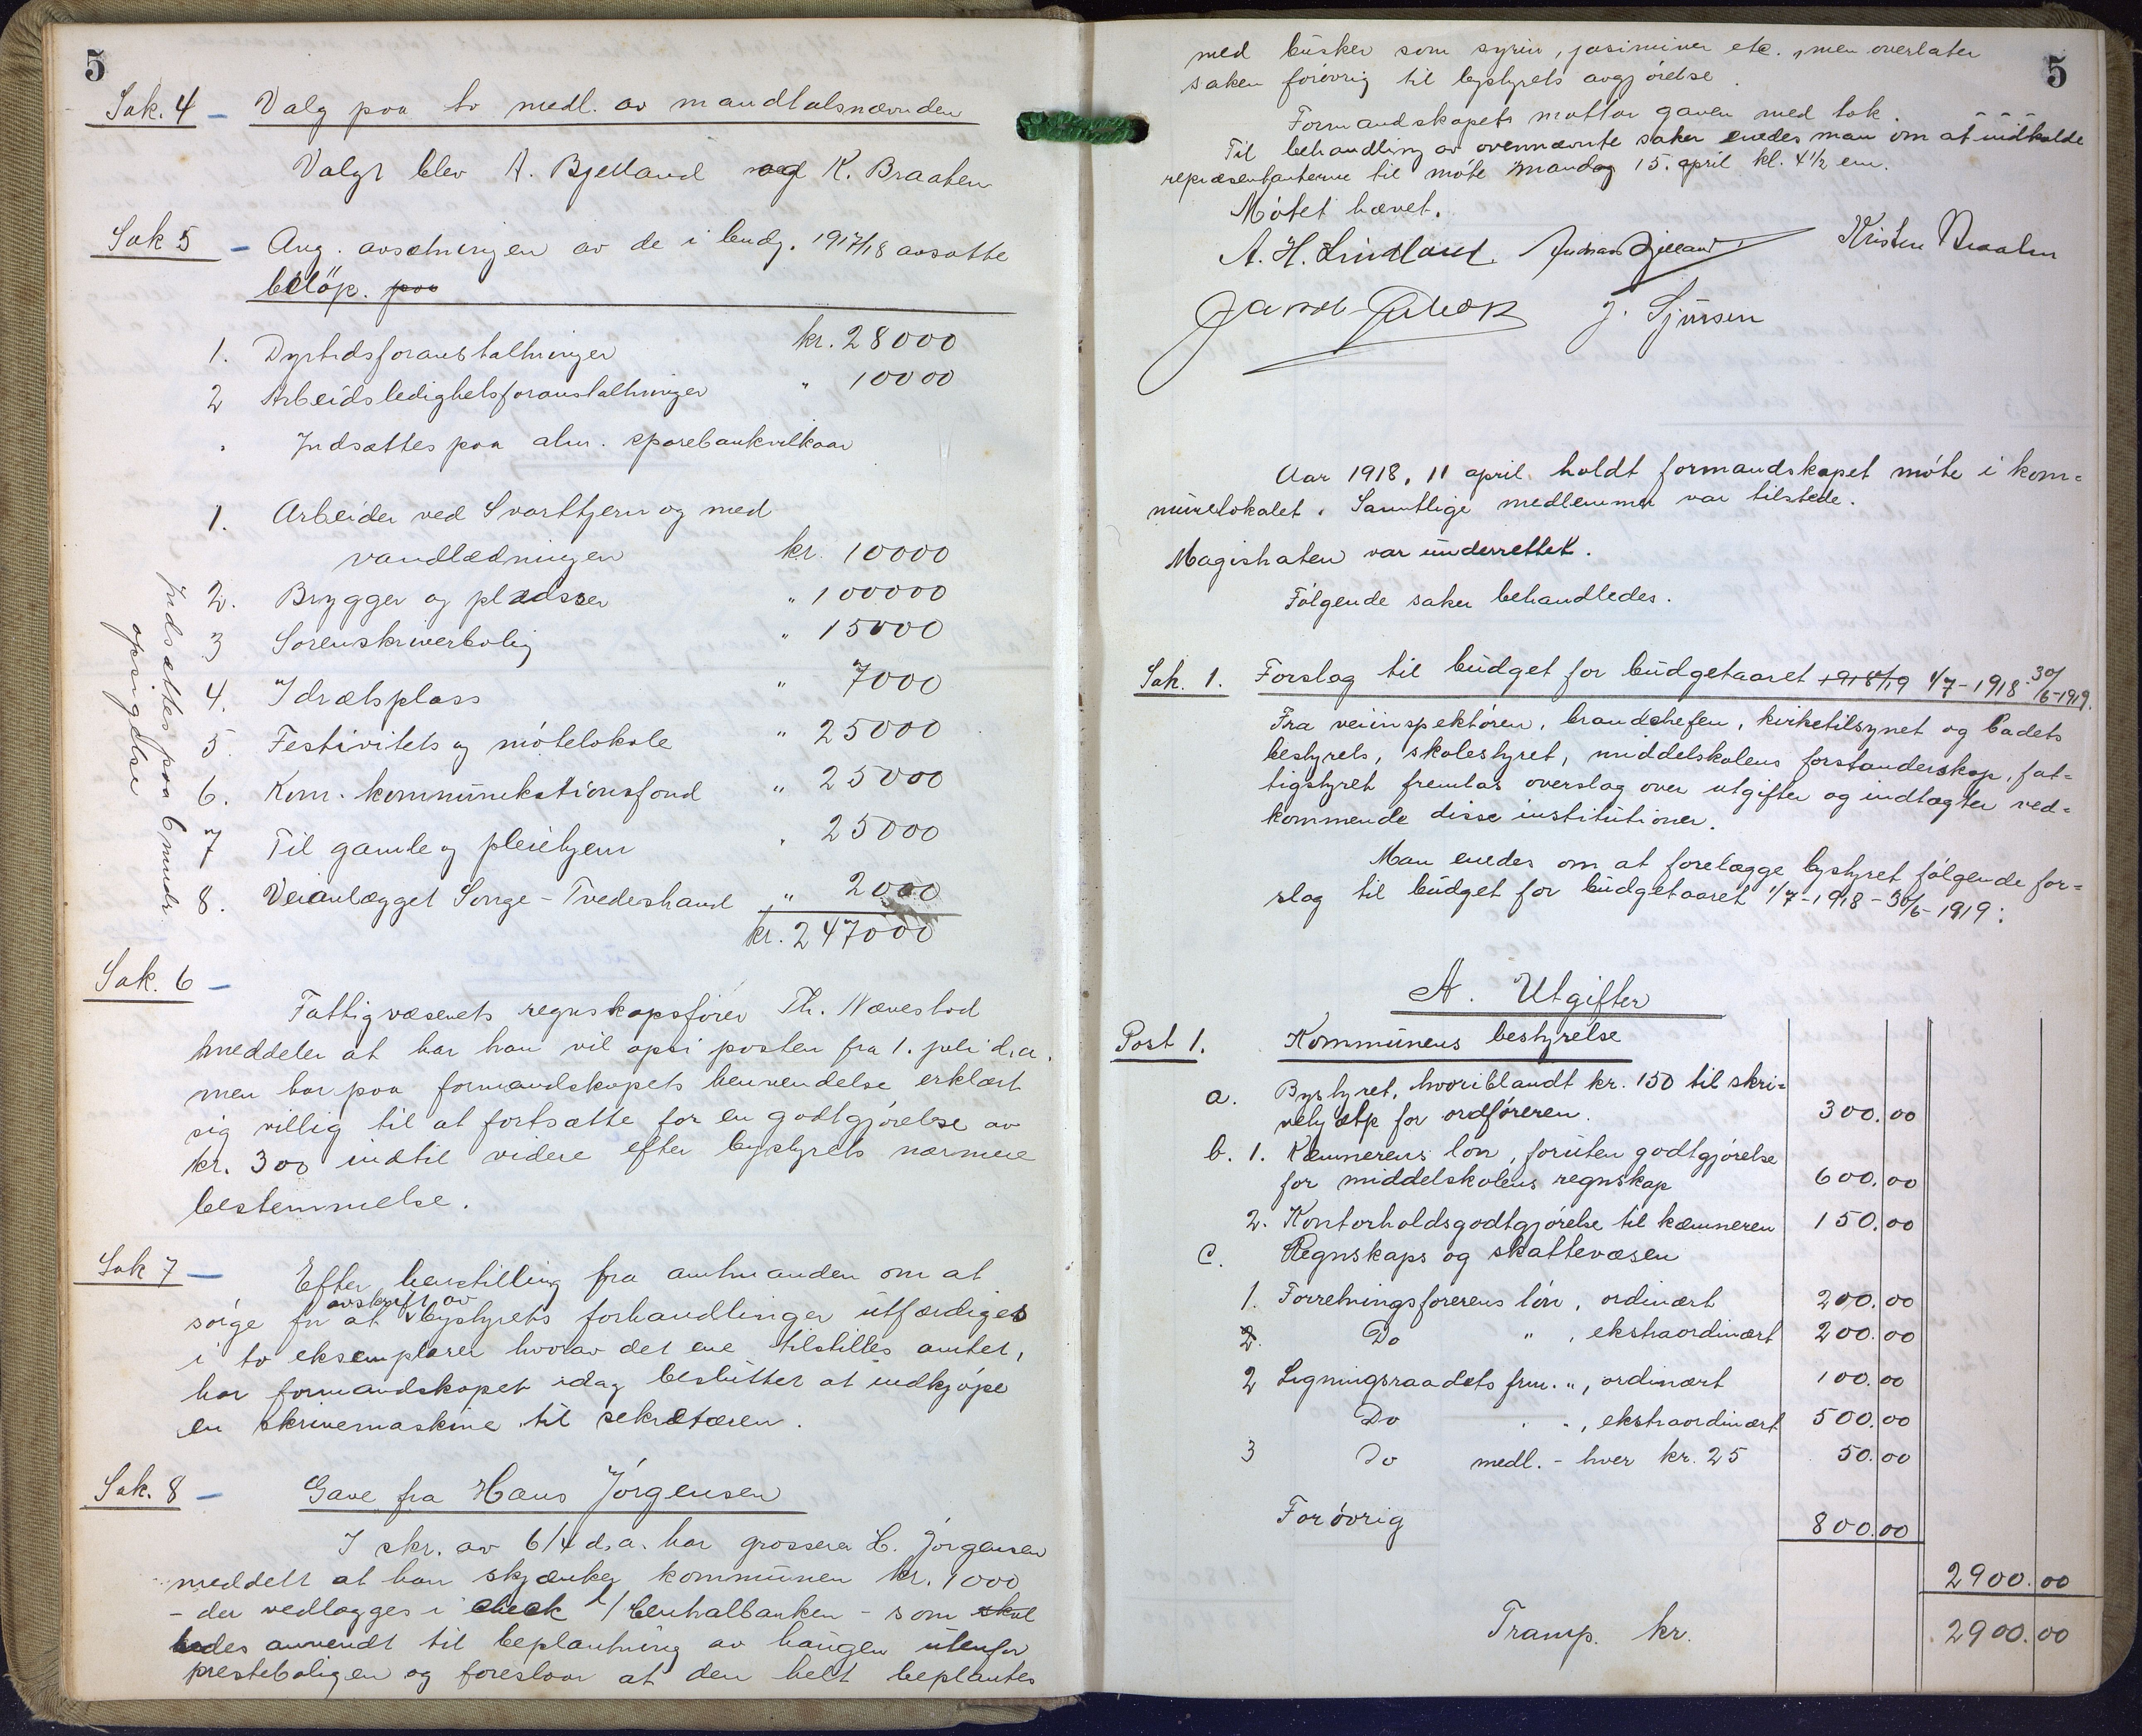 5
Sak. 4 – Valg paa to medl. av mandtalsnævnden
Valgt blev A. Bjelland og K. Braaten
Sak 5 – Ang. avsetningen av de i budg. 1917/18 avsatte
beløp. paa
1. Dyrtidsforanstaltninger kr. 28000
2 Arbeidsledighetsforanstaltninger " 10000
Indsættes paa alm. sparebankvilkaar
1. Arbeider ved Svarttjern og med
vandledningen kr. 10000
2. Brygger og pladser " 100000
3 Sorenskriverbolig " 15000
4. Idrætsplass " 7000
5. Festivitets og møtelokale " 25000
6. Kom. kommunikationsfond " 25000
7 Til gamle og pleiehjem " 25000
8. Veianlægget Songe - Tvedestrand " 2000
kr. 247000
Indsættes paa 6 mndr
opsigelse
Sak. 6 –
Fattigvæsenets regnskapsfører Th. Nævestad
meddeler at har han vil opsi posten fra 1. juli d.a.
men har paa formandskapets henvendelse erklært
sig villig til at fortsætte for en godtgjørelse av
kr. 300 indtil videre efter bystyrets nærmere
bestemmelse.
Sak 7 –
Efter henstilling fra amtmanden om at
sørge for at avskrift av bystyrets forhandlinger utfærdiges
i to eksemplarer hvorav det ene tilstilles amtet,
har formandskapet idag besluttet at indkjøpe
en skrivemaskine til sekretæren.
Sak. 8 – Gave fra Hans Jørgensen
I skr. av 6/4 d.a. har grosserer H. Jørgensen
meddelt at han skjænker kommunen kr. 1000
- der vedlægges i check / Centralbanken - som skal
bedes anvendt til beplantning av haugen utenfor
presteboligen og foreslaar at den helt beplantes
5
med busker som syrin, jasiminer etc., men overlater
saken forøvrig til bystyrets avgjørelse.
Formandskapets mottar gaven med tak.
Til behandling av ovennævnte saker enedes man om at indkalde
repræsentanterne til møte mandag 15. april kl. 4 1/2 em.
Møtet hævet.
A. H. Lindland. Andreas Bjelland Kristen Braaten
J. Sjursen
Aar 1918, 11 april holdt formandskapet møte i kom=
munelokalet. Samtlige medlemmer var tilstede.
Magistraten var underrettet.
Følgende saker behandledes.
Sak. 1. Forslag til budget for budgetaaret 1918/19 1/7-1918-30/6-1919.
Fra veiinspektøren, brandchefen, kirketilsynet og badets
bestyrels, skolestyret, middelskolens forstanderskap, fat=
tigstyret fremlaa overslag over utgifter og indtægter ved=
kommende disse institutioner.
Man enedes om at forelægge bystyret følgende for=
slag til budget for budgetaaret 1/7-1918-30/6-1919:
A. Utgifter
Post 1. Kommunens bestyrelse
a. Bystyret, hvoriblandt kr. 150 til skri=
vehjælp for ordføreren. 300.00
b. 1. Kæmnerens løn, foruten godtgjørelse
for middelskolens regnskap 600.00
2. Kontorholdsgodtgjørelse til kæmneren 150.00
c. Regnskaps og skattevæsen
1. Forretningsførerens løn, ordinært 200.00
2. Do " , ekstraordinært 200.00
2 Ligningsraadets frm. ", ordinært 100.00
Do " ", ekstraordinært 500.00
3 Do medl. - hver kr. 25 50.00
Forøvrig 800.00
2900.00
Transp. kr. 2900.00